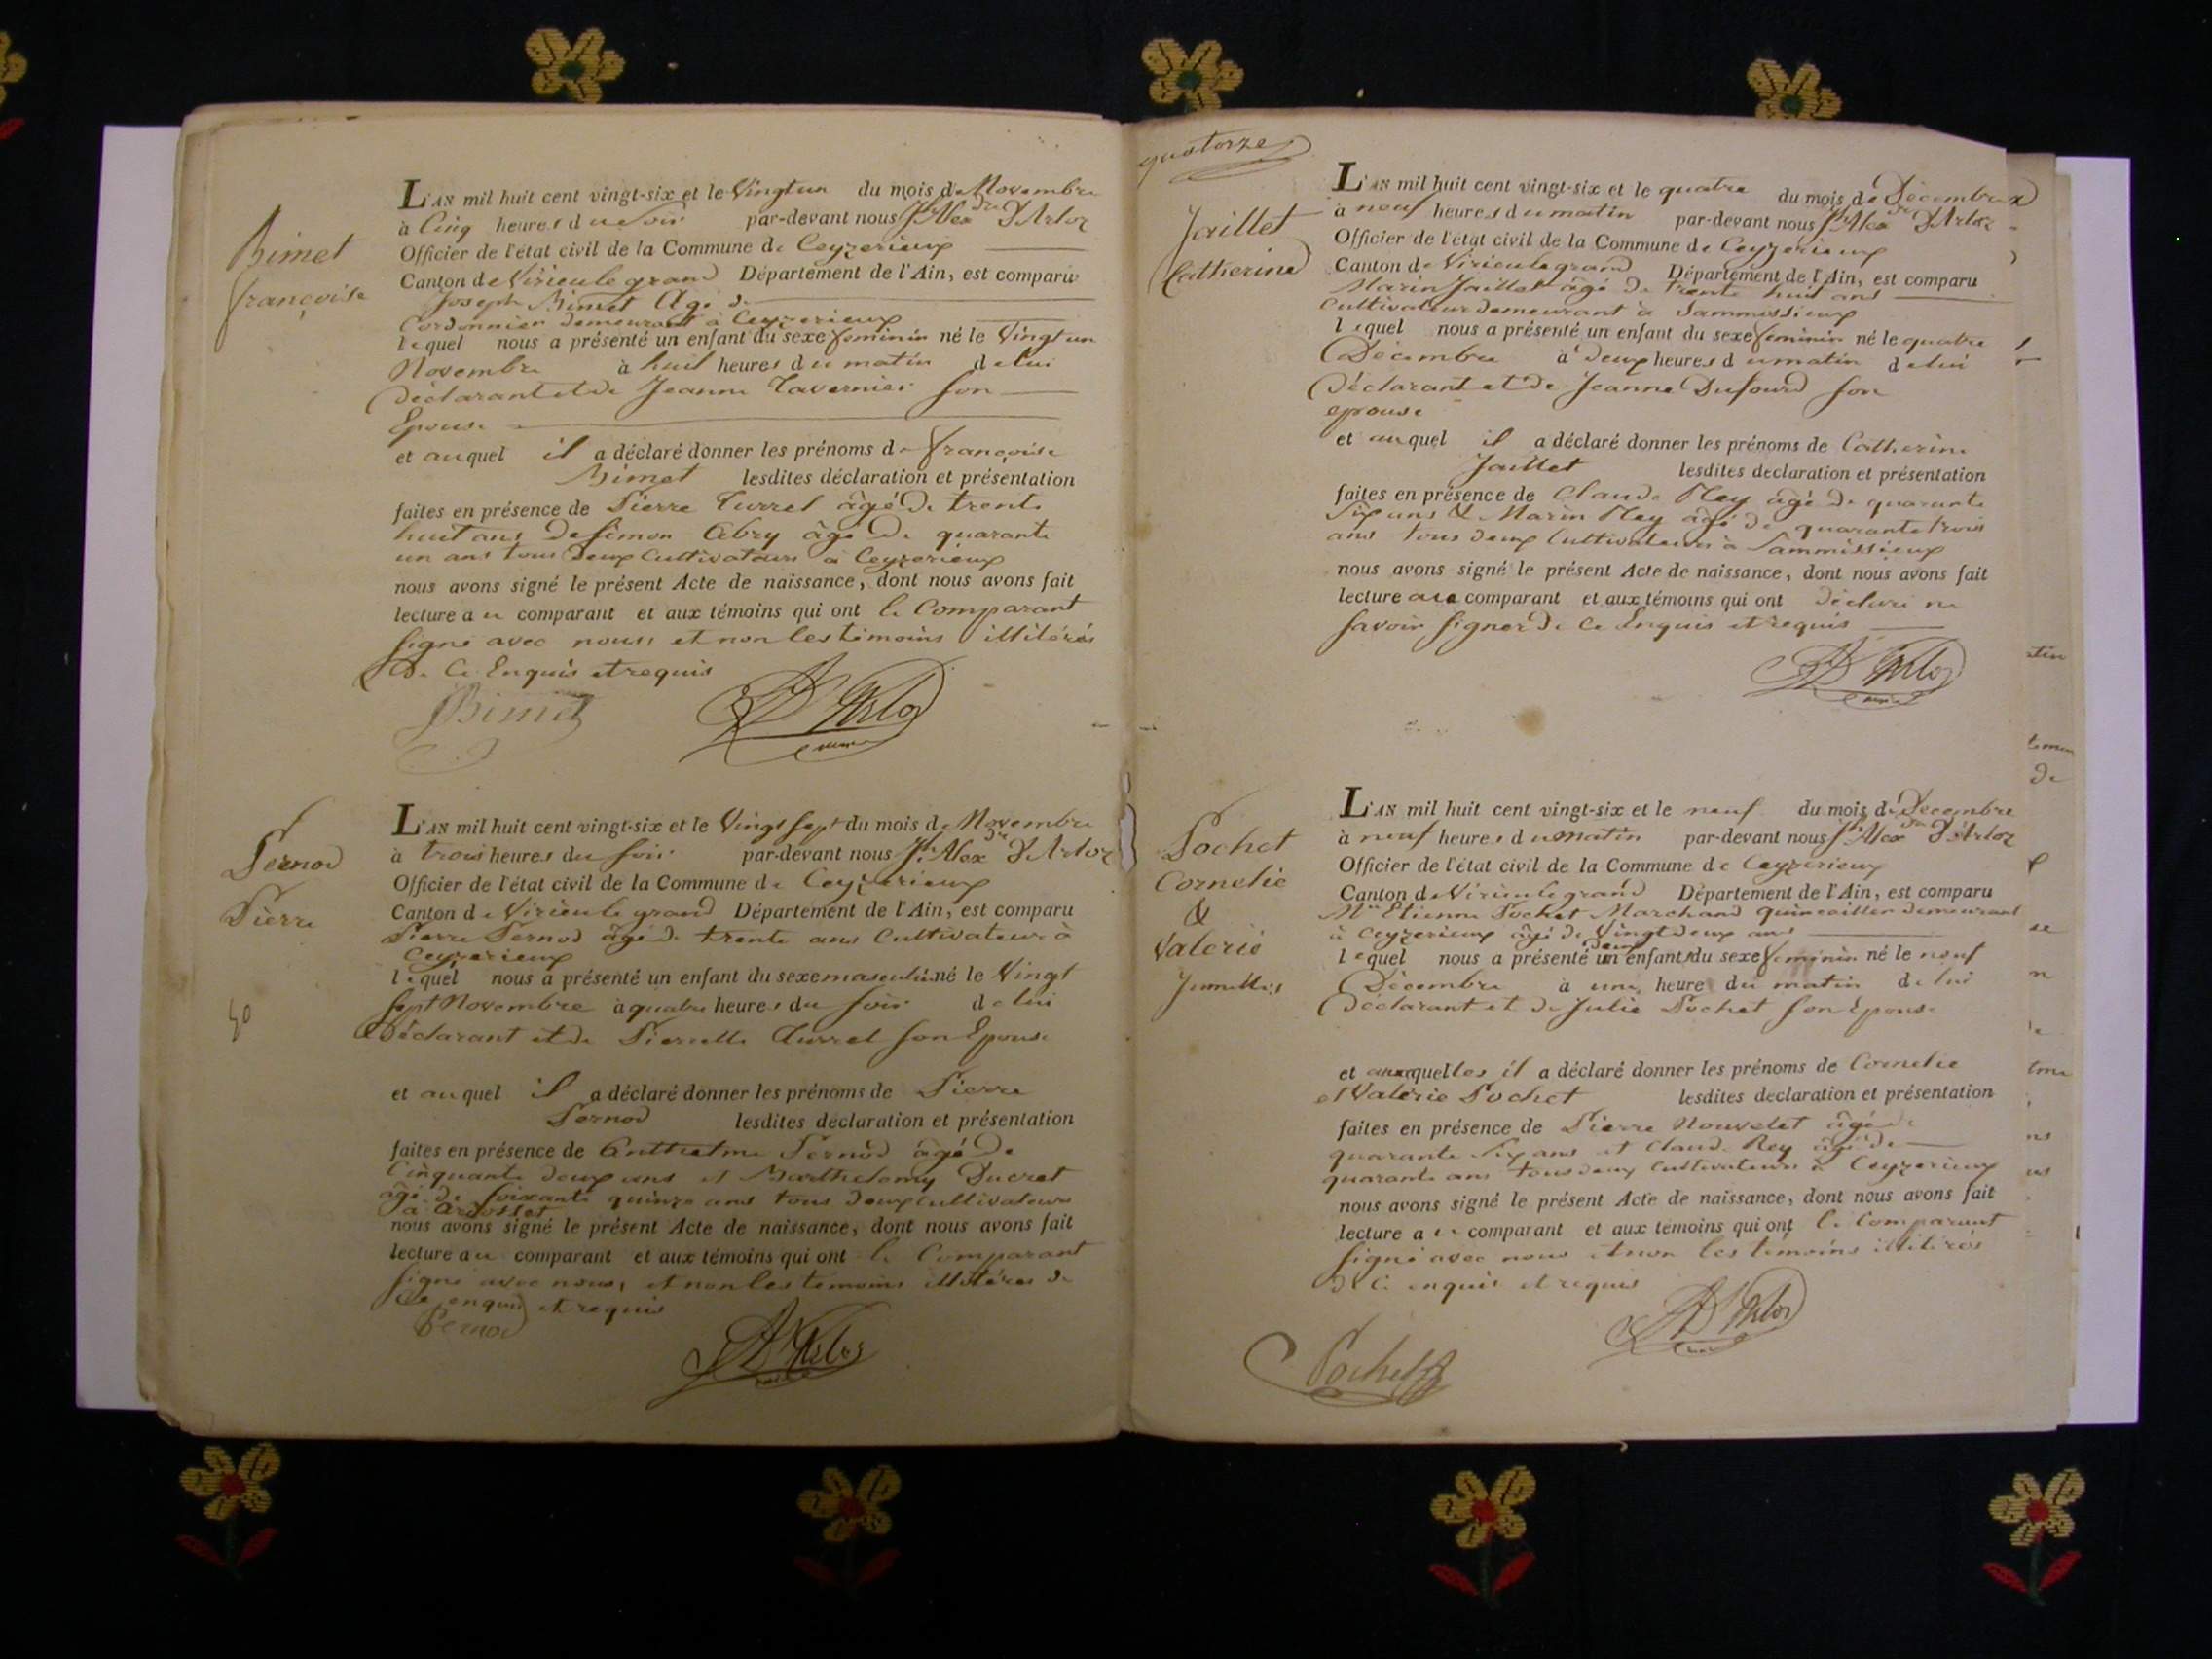 Bimet
françoise
L'AN mil huit cent vingt-six et le Vingt un du mois de Novembre
à Cinq heures du soir par-devant nous Jh Alexdre D'Arloz
Officier de l'état civil de la Commune de Ceyzerieux
Canton de Virieu le grand Département de l'Ain, est comparu
Joseph Bimet Agé de
Cordonnier demeurant à Ceyzerieux
lequel nous a présenté un enfant du sexe feminin né le Vingt un
Novembre à huit heures du matin de lui
Déclarant et de Jeanne Tavernier son
Epouse
et auquel il a déclaré donner les prénoms de françoise
Bimet lesdites déclaration et présentation
faites en présence de Pierre Turrel âgé de trente
huit ans De Simon Abry âgé de quarante
un ans tous deux Cultivateurs à Ceyzerieux
nous avons signé le présent Acte de naissance, dont nous avons fait
lecture au comparant et aux témoins qui ont le Comparant
signé avec nous, et non les témoins illitérés
De Ce Enquis et requis
Bimet
D'Arloz
Pernod
Pierre
L'AN mil huit cent vingt-six et le Vingt sept du mois de Novembre
à trois heures du soir par-devant nous Jh Alexdre D'Arloz
Officier de l'état civil de la Commune de Ceyzerieux
Canton de Virieu le grand Département de l'Ain, est comparu
Pierre Pernod âgé de trente ans Cultivateur à
Ceyzerieux
lequel nous a présenté un enfant du sexe masculin né le Vingt
sept Novembre à quatre heures du soir de lui
Déclarant et de Pierrette Turrel son Epouse
et auquel il a déclaré donner les prénoms de Pierre
Pernod lesdites déclaration et présentation
faites en présence de Anthelme Pernod âgé de
Cinquante deux ans et Barthelemy Ducret
âgé de soixante quinze ans tous deux cultivateurs
à Ardosset
nous avons signé le présent Acte de naissance, dont nous avons fait
lecture au comparant et aux témoins qui ont le Comparant
signé avec nous, et non les témoins illitérés de
Ce enquis et requis
Pernod
D'Arloz
quatorze
Jaillet
Catherine
L'AN mil huit cent vingt-six et le quatre du mois de Décembre
à neuf heures du matin par-devant nous Jh Alexdre D'Arloz
Officier de l'état civil de la Commune de Ceyzerieux
Canton de Virieu le grand Département de l'Ain, est comparu
Marin Jaillet âgé de trente huit ans
Cultivateur demeurant à Sammissieux
lequel nous a présenté un enfant du sexe feminin né le quatre
Décembre à deux heures du matin de lui
Déclarant et de Jeanne Dufourd son
epouse
et auquel il a déclaré donner les prénoms de Catherine
Jaillet lesdites déclaration et présentation
faites en présence de Claude Rey âgé de quarante
six ans & Marin Rey âgé de quarante trois
ans tous deux Cultivateurs à Sammissieux
nous avons signé le présent Acte de naissance, dont nous avons fait
lecture au comparant et aux témoins qui ont déclaré ne
savoir signer de Ce Enquis et requis
D'Arloz
Pochet
Cornelie
&
Valerie
Jumelles
L'AN mil huit cent vingt-six et le neuf du mois de Decembre
à neuf heures du matin par-devant nous Jh Alexdre D'Arloz
Officier de l'état civil de la Commune de Ceyzerieux
Canton de Virieu le grand Département de l'Ain, est comparu
Mr Etienne Pochet Marchand quincailler demeurant
à Ceyzerieux âgé de Vingt deux ans
lequel nous a présenté deux enfants du sexe feminin né le neuf
Décembre à une heure du matin de lui
Déclarant et de Julie Pochet son Epouse
et auxquelles il a déclaré donner les prénoms de Cornelie
et Valérie Pochet lesdites déclaration et présentation
faites en présence de Pierre Nouvelet âgé de
quarante six ans et Claude Rey âgé de
quarante ans tous deux Cultivateurs à Ceyzerieux
nous avons signé le présent Acte de naissance, dont nous avons fait
lecture au comparant et aux témoins qui ont le Comparant
signé avec nous et non les témoins illitérés
de Ce enquis et requis
D'Arloz
Pochet